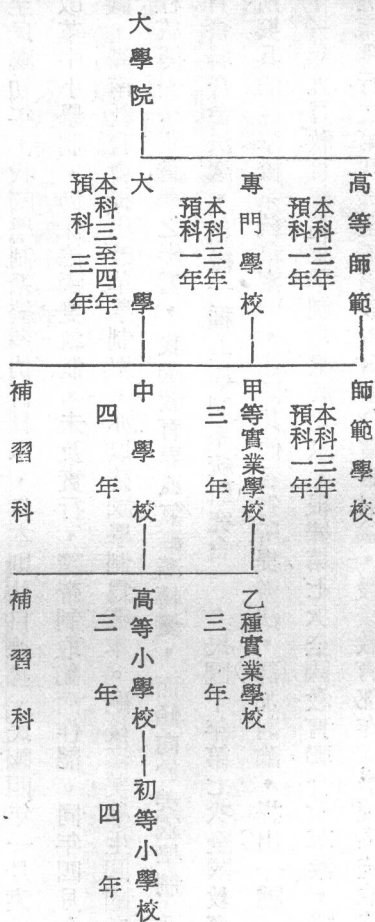 高等師範
本科三年
預科一年
專門學校
本科三年
預科一年
大學院
大學
本科三至四年
預科三年
師範學校
本科三年
預科一年
甲等實業學校
三年
中學校
四年
補習科
乙種實業學校
三年
高等小學校
三年
補習科
初等小學校
四年